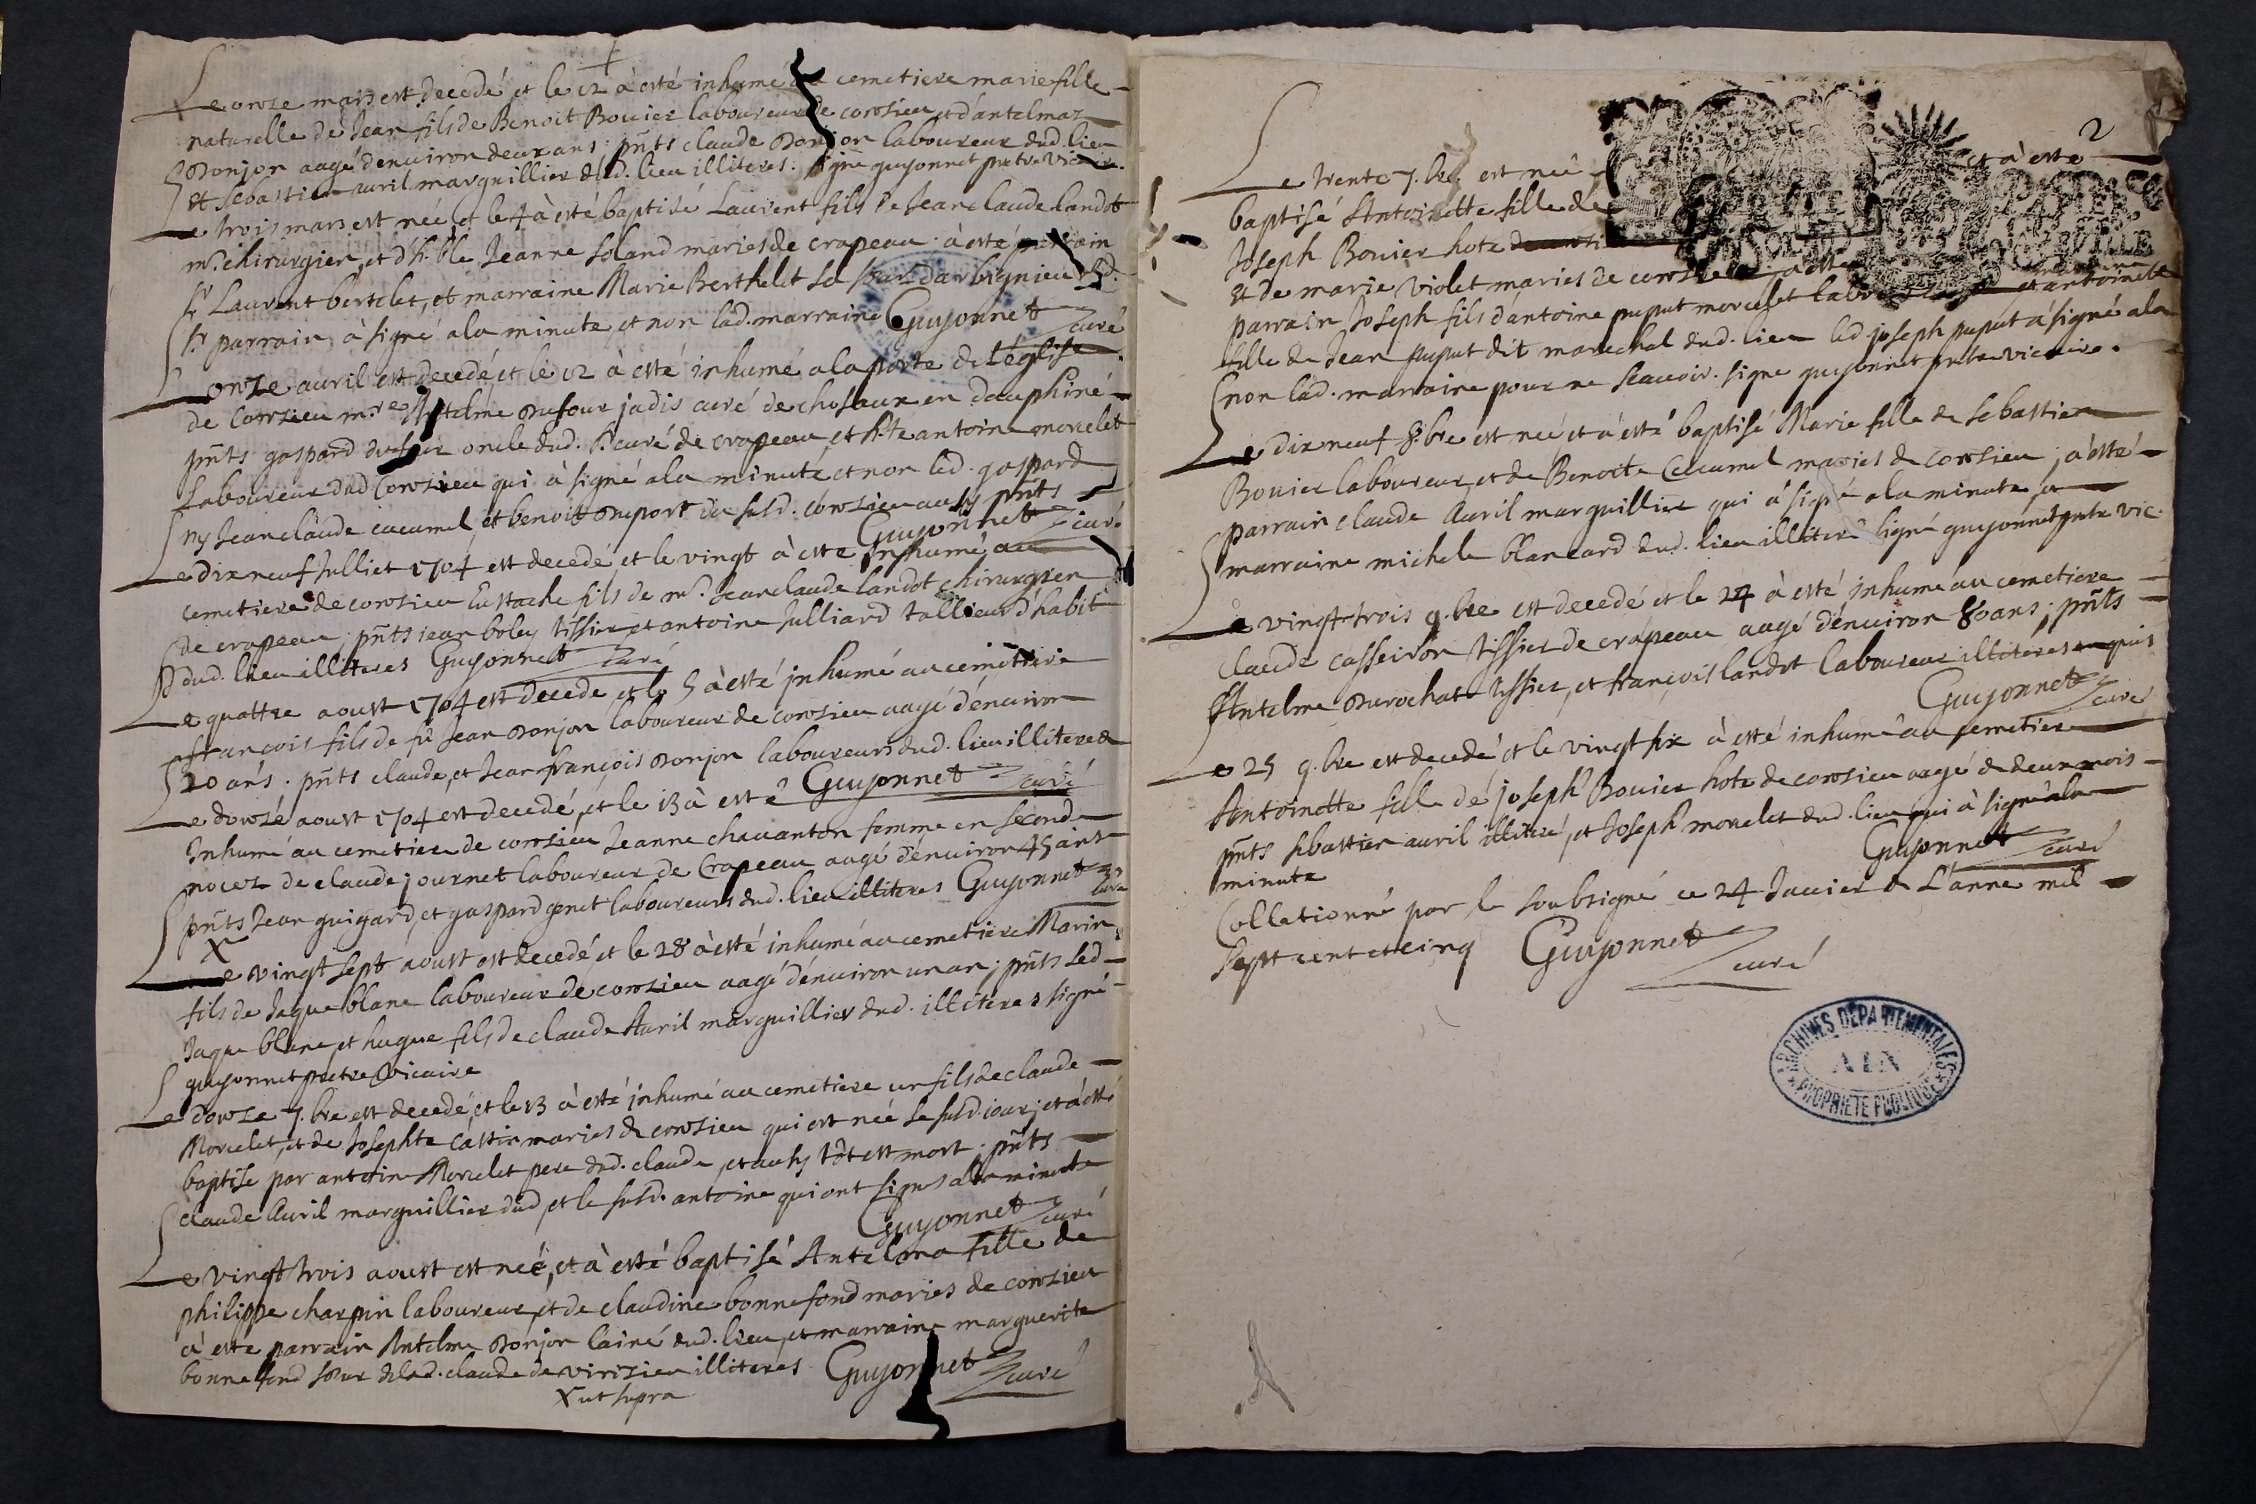 Le onze mars est decedé et le 12 à esté inhumé au cemetiere marie fille
naturelle de Jean fils de Benoit Bouier laboureur de conzieu et dantelmaz
Donjon aagé denuiron deux ans pnts claude Donjon laboureur dud. lieu
et sebastien auril marguillier dud. lieu illiteres. signe guyonnet pretre vicaire.
Le trois mars est née et le 4 à esté baptisé Laurent fils de Jean claude landot
mr. chirurgien et d'h.ble Jeanne soland maries de crapeau à esté parrain
sr Laurent bertelet, et marraine Marie Berthelet sa darbignieu led.
sr parrain à signé a la minute et non lad. marraine Guyonnet curé
Le onze auril est decedé, et le 12 à esté inhumé a la porte de l'église
de Conzieu m.re Antelme Dufour jadis curé de cholaux en dauphiné
pnts gaspard dufour oncle dud. sr. curé de crapeau et h.te antoine morcelet
Laboureur dud Conzieu qui à signé a la minute et non led. gaspard
ny Jean claude cucumel et benoit Duport du susd. conzieu aussy pnts
Guyonnet curé
Le dix neuf Julliet 1704 est decedé et le vingt à esté Inhumé au
cemetiere de conzieu Eustache fils de mr. Jean claude landot chirurgien
de crapeau; pnts jean boley tissier et antoine Julliard tallieur d'habit
dud. lieu illiteres Guyonnet curé
Le quattre aoust 1704 est decede et le 5 à esté inhumé au cemettiere
françois fils de fû Jean Donjon laboureur de conzieu aagé d'enuiron
20 ans. pnts claude, et Jean françois Donjon laboureurs dud. lieu illiteres
Guyonnet curé
Le douze aoust 1704 est decedé, et le 13 à esté
Inhumé au cemetiere de conzieu Jeanne chauanton femme en seconde
noces de claude journet laboureur de Crapeau aagé d'enuiron 45 ans
pnts Jean guigard, et gaspard genet laboureurs dud. lieu illiteres Guyonnet curé
X
Le vingt sept aoust est decedé, et le 28 à esté inhumé au cemetiere Marin
fils de Jaque blanc laboureur de conzieu aagé d'enuiron un an; pnts led
Jaque blanc, et hugue fils de claude Auril marguillier dud. illiteres signé
guyonnet pretre vicaire
Le douze 7.bre est decedé, et le 13 à esté inhumé au cemetiere un fils de claude
Morcelet, et de Josephte Castin maries de conzieu qui est née le susd. jour, et à esté
baptise par antoine Morcelet pere dud. claude, et aussy tôt est mort; pnts
claude Auril marguillier dud, et le susd. antoine qui ont signes a la minute
Guyonnet curé
Le vingt trois aoust est neé, et à esté baptisé Antelma fille de
philippe charpin laboureur, et de claudine bonnefond maries de conzieu
à esté parrain Antelme Donjon lainé dud. lieu, et marraine marguerite
bonnefond sœur delad. claude de virizieu illiteres Guyonnet curé
X ut supra
2
Le trente 7.bre est neé et à esté
baptisé Antoinette fille de
Joseph Bouier hote
Et de marie violet maries de conzieu à esté
parrain Joseph fils d'antoine puput morcelet et antoinette
fille de Jean puput dit marechal dud. lieu led joseph puput à signé a la
non lad. marraine pour ne scauoir. signe guyonnet pretre vicaire.
Le dix neuf 8.bre est neé et à esté baptisé Marie fille de sebastien
Bouier laboureur, et de Benoite Cucumel maries de conzieu, à esté
parrain claude Auril marguillier qui à signé a la minute et
marraine michele blancard dud. lieu illitere signé guyonnet pretre vic.
Le vingt trois 9.bre est decedé et le 24 à esté inhumé au cemetiere
Claude casseiron tissier de crapeau aagé d'enuiron 80 ans; pnts
Antelme Durochat tissier, et françois landot laboureur illiteres enquis
Guyonnet curé
Le 25 9.bre est decedé et le vingt six à esté inhumé au cemetiere
Antoinette fille de joseph Bouier hote de conzieu aagé de deux mois
pnts sebastien auril illiteré, et Joseph morcelet dud. lieu qui à signé a la
minute Guyonnet curé
Collationné par le soubsigné ce 24 Januier de L'anne mil
sept cent et cinq Guyonnet curé
ARCHIVES DEPARTEMENTALES
AIN
PROPRIETE PUBLIQUE